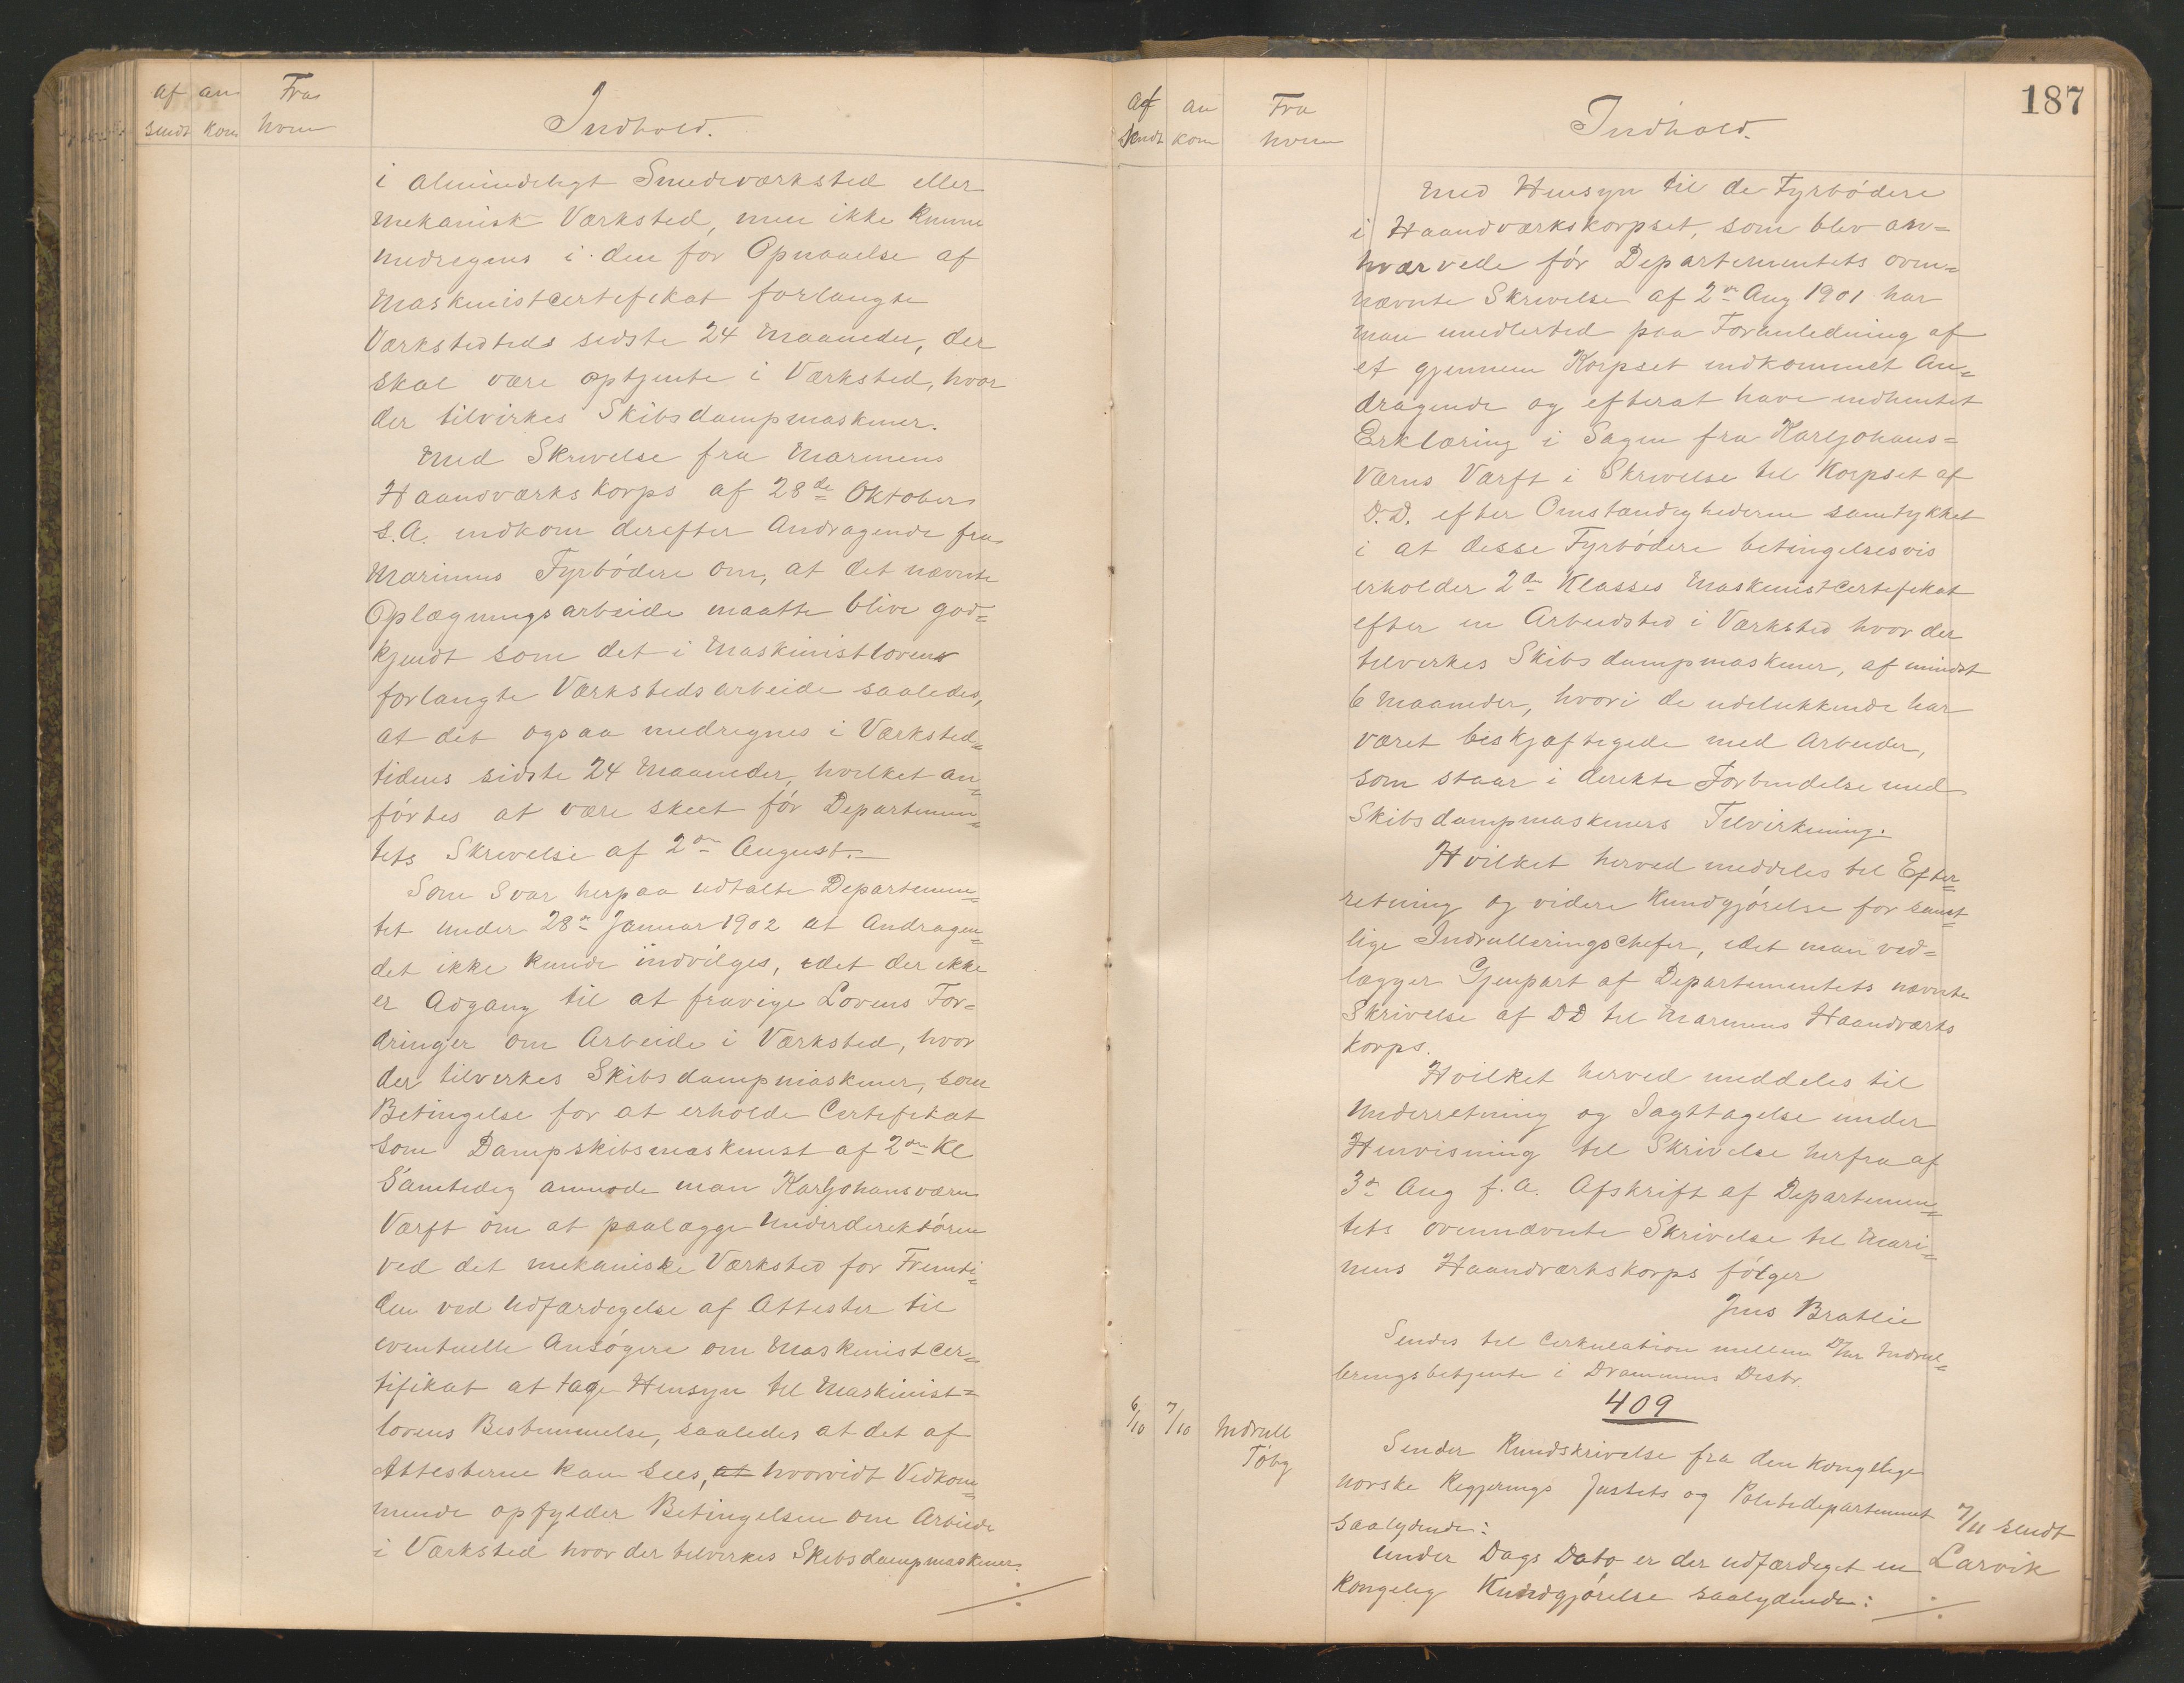 af an Fra
sendt kom hvem Indhold.
i almindeligt Smedeværksted eller
mekanisk Værksted, men ikke kunne
medregnes i den for Opnaaelse af
Maskinistcertifikat forlangte
Værkstedtids sidste 24 Maaneder, der
skal være optjente i Værksted, hvor
der tilvirkes Skibsdampmaskiner.
Med Skrivelse fra Marinens
Haandværkskorps af 28de Oktober
s.A. indkom derefter Andragende fra
Marinens Fyrbødere om, at det nævnte
Oplægningsarbeide maatte blive god=
kjendt som det i Maskinistloven
forlangte Værkstedsarbeide saaledes,
at det ogsaa medregnes i Værksted=
tidens sidste 24 Maaneder, hvilket an=
førtes at være skeet før Departemen=
tets Skrivelse af 2den August.—
Som Svar herpaa udtalte Departemen=
tet under 28de Januar 1902 at Andragen=
det ikke kunde indvilges, idet der ikke
er Adgang til at fravige Lovens For=
dringer om Arbeide i Værksted, hvor
der tilvirkes Skibsdampmaskiner, som
Betingelse for at erholde Certifikat
som Dampskibsmaskinist af 2den Kl
Samtidig anmode man Karljohansværn
Værft om at paalægge Underdirektøren
ved det mekaniske Værksted for Fremti=
den ved Udfærdigelse af Attester til
eventuelle Ansøgere om Maskinistcer=
tifikat at tage Hensyn til Maskinist=
lovens Bestemmelse, saaledes at det af
Attesterne kan sees, at hvorvidt Vedkom=
mende opfylder Betingelsen om Arbeide
i Værksted hvor der tilvirkes Skibsdampmaskiner.
·/·
187
Af an Fra
sendt kom hvem Indhold.
Med Hensyn til de Fyrbødere
i Haandværkskorpset, som blev an=
hvervede før Departementets oven=
nævnte Skrivelse af 2den Aug 1901 har
man imidlertid paa Foranledning af
et gjennem Korpset indkommet An=
dragende og efterat have indhentet
Erklæring i Sagen fra Karljohans=
Værns Værft i Skrivelse til Korpset af
D.D. efter Omstændighederne samtykket
i at disse Fyrbødere betingelsesvis
erholder 2den Klasses Maskinistcertifikat
efter en Arbeidstid i Værksted hvor der
tilvirkes Skibsdampmaskiner, af mindst
6 Maaneder, hvori de udelukkende har
været beskjæftigede med Arbeider,
som staar i direkte Forbindelse med
Skibsdampmaskiners Tilvirkning.
Hvilket herved meddeles til Efter=
retning og videre Kundgjørelse for samt
lige Indrulleringschefer, idet man ved=
lægger Gjenpart af Departementets nævnte
Skrivelse af DD til Marinens Haandværks
korps.
Hvilket herved meddeles til
Underretning og Iagttagelse under
Henvisning til Skrivelse herfra af
3de Aug f.A. Afskrift af Departemen=
tets ovennævnte Skrivelse til Mari=
nens Haandværkskorps følger
Jens Bratlie
Sendes til Cirkulation mellem Indrul=
leringsbetjente i Drammens Distr.
409
6/10 7/10 Indrull
Tøbg
Sender Rundskrivelse fra den kongelige
norske Regjerings Justits og Politidepartement
saalydende:
Under Dags Dato er der udfærdiget en
kongelig Kundgjørelse saalydende:
7/11 sendt
Larvik
·/·